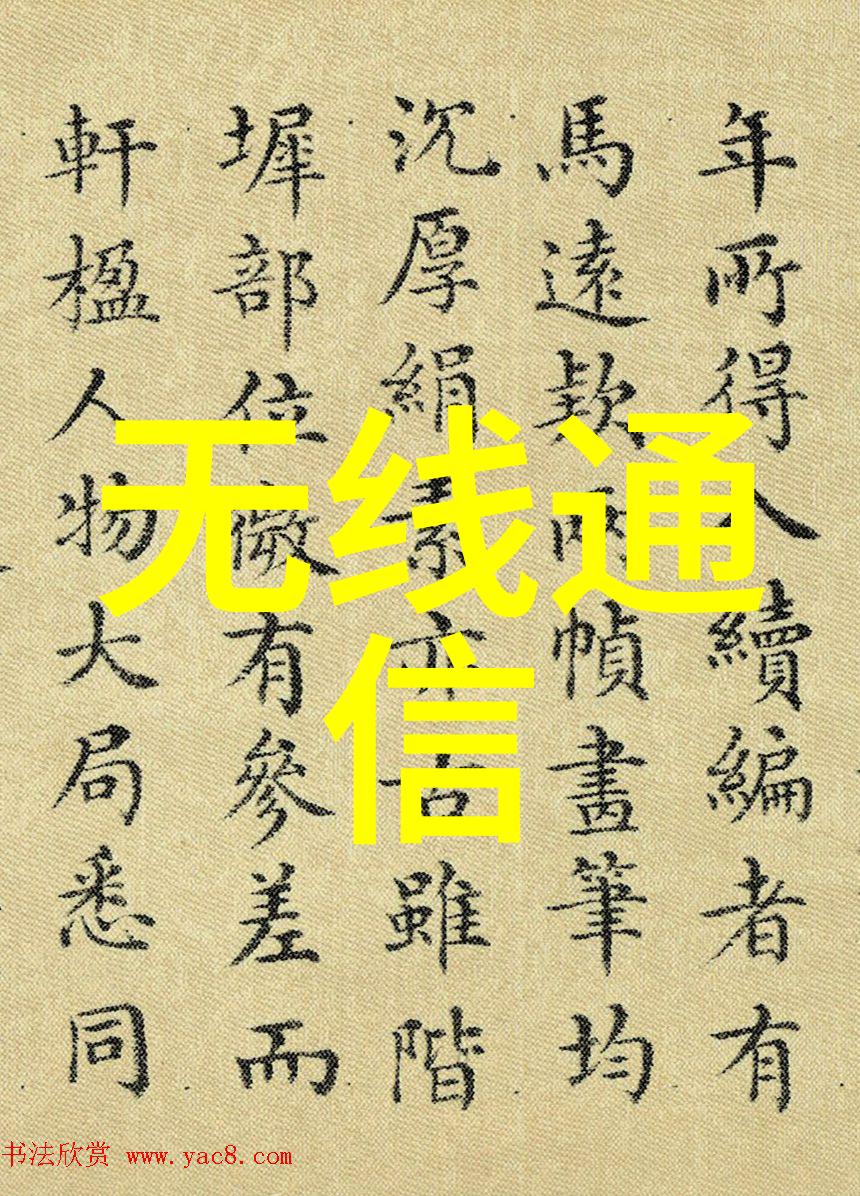 年所得入續編者有
馬遠款兩幀畫筆均
沉厚絹素亦古雖階
墀部位微有參差而
軒楹人物大局悉同
无线通
信
书法欣赏 www.yac8.com